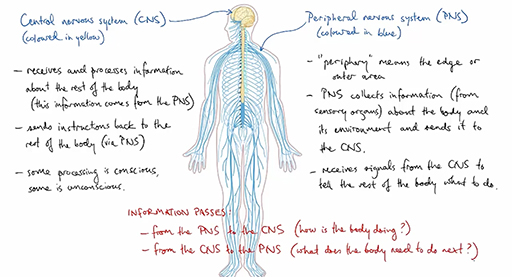 Central nervous system (CNS)
(coloured in yellow)
- receives and processes information
about the rest of the body
(this information comes from the PNS)
- sends instructions back to the
rest of the body (via PNS)
- some processing is conscious,
some is unconscious.
Peripheral nervous system (PNS)
(coloured in blue)
- "periphery" means the edge or
outer area
- PNS collects information (from
sensory organs) about the body and
its environment and sends it to
the CNS.
- receives signals from the CNS to
tell the rest of the body what to do.
INFORMATION PASSES:
- from the PNS to the CNS (how is the body doing?)
- from the CNS to the PNS (what does the body need to do next?)